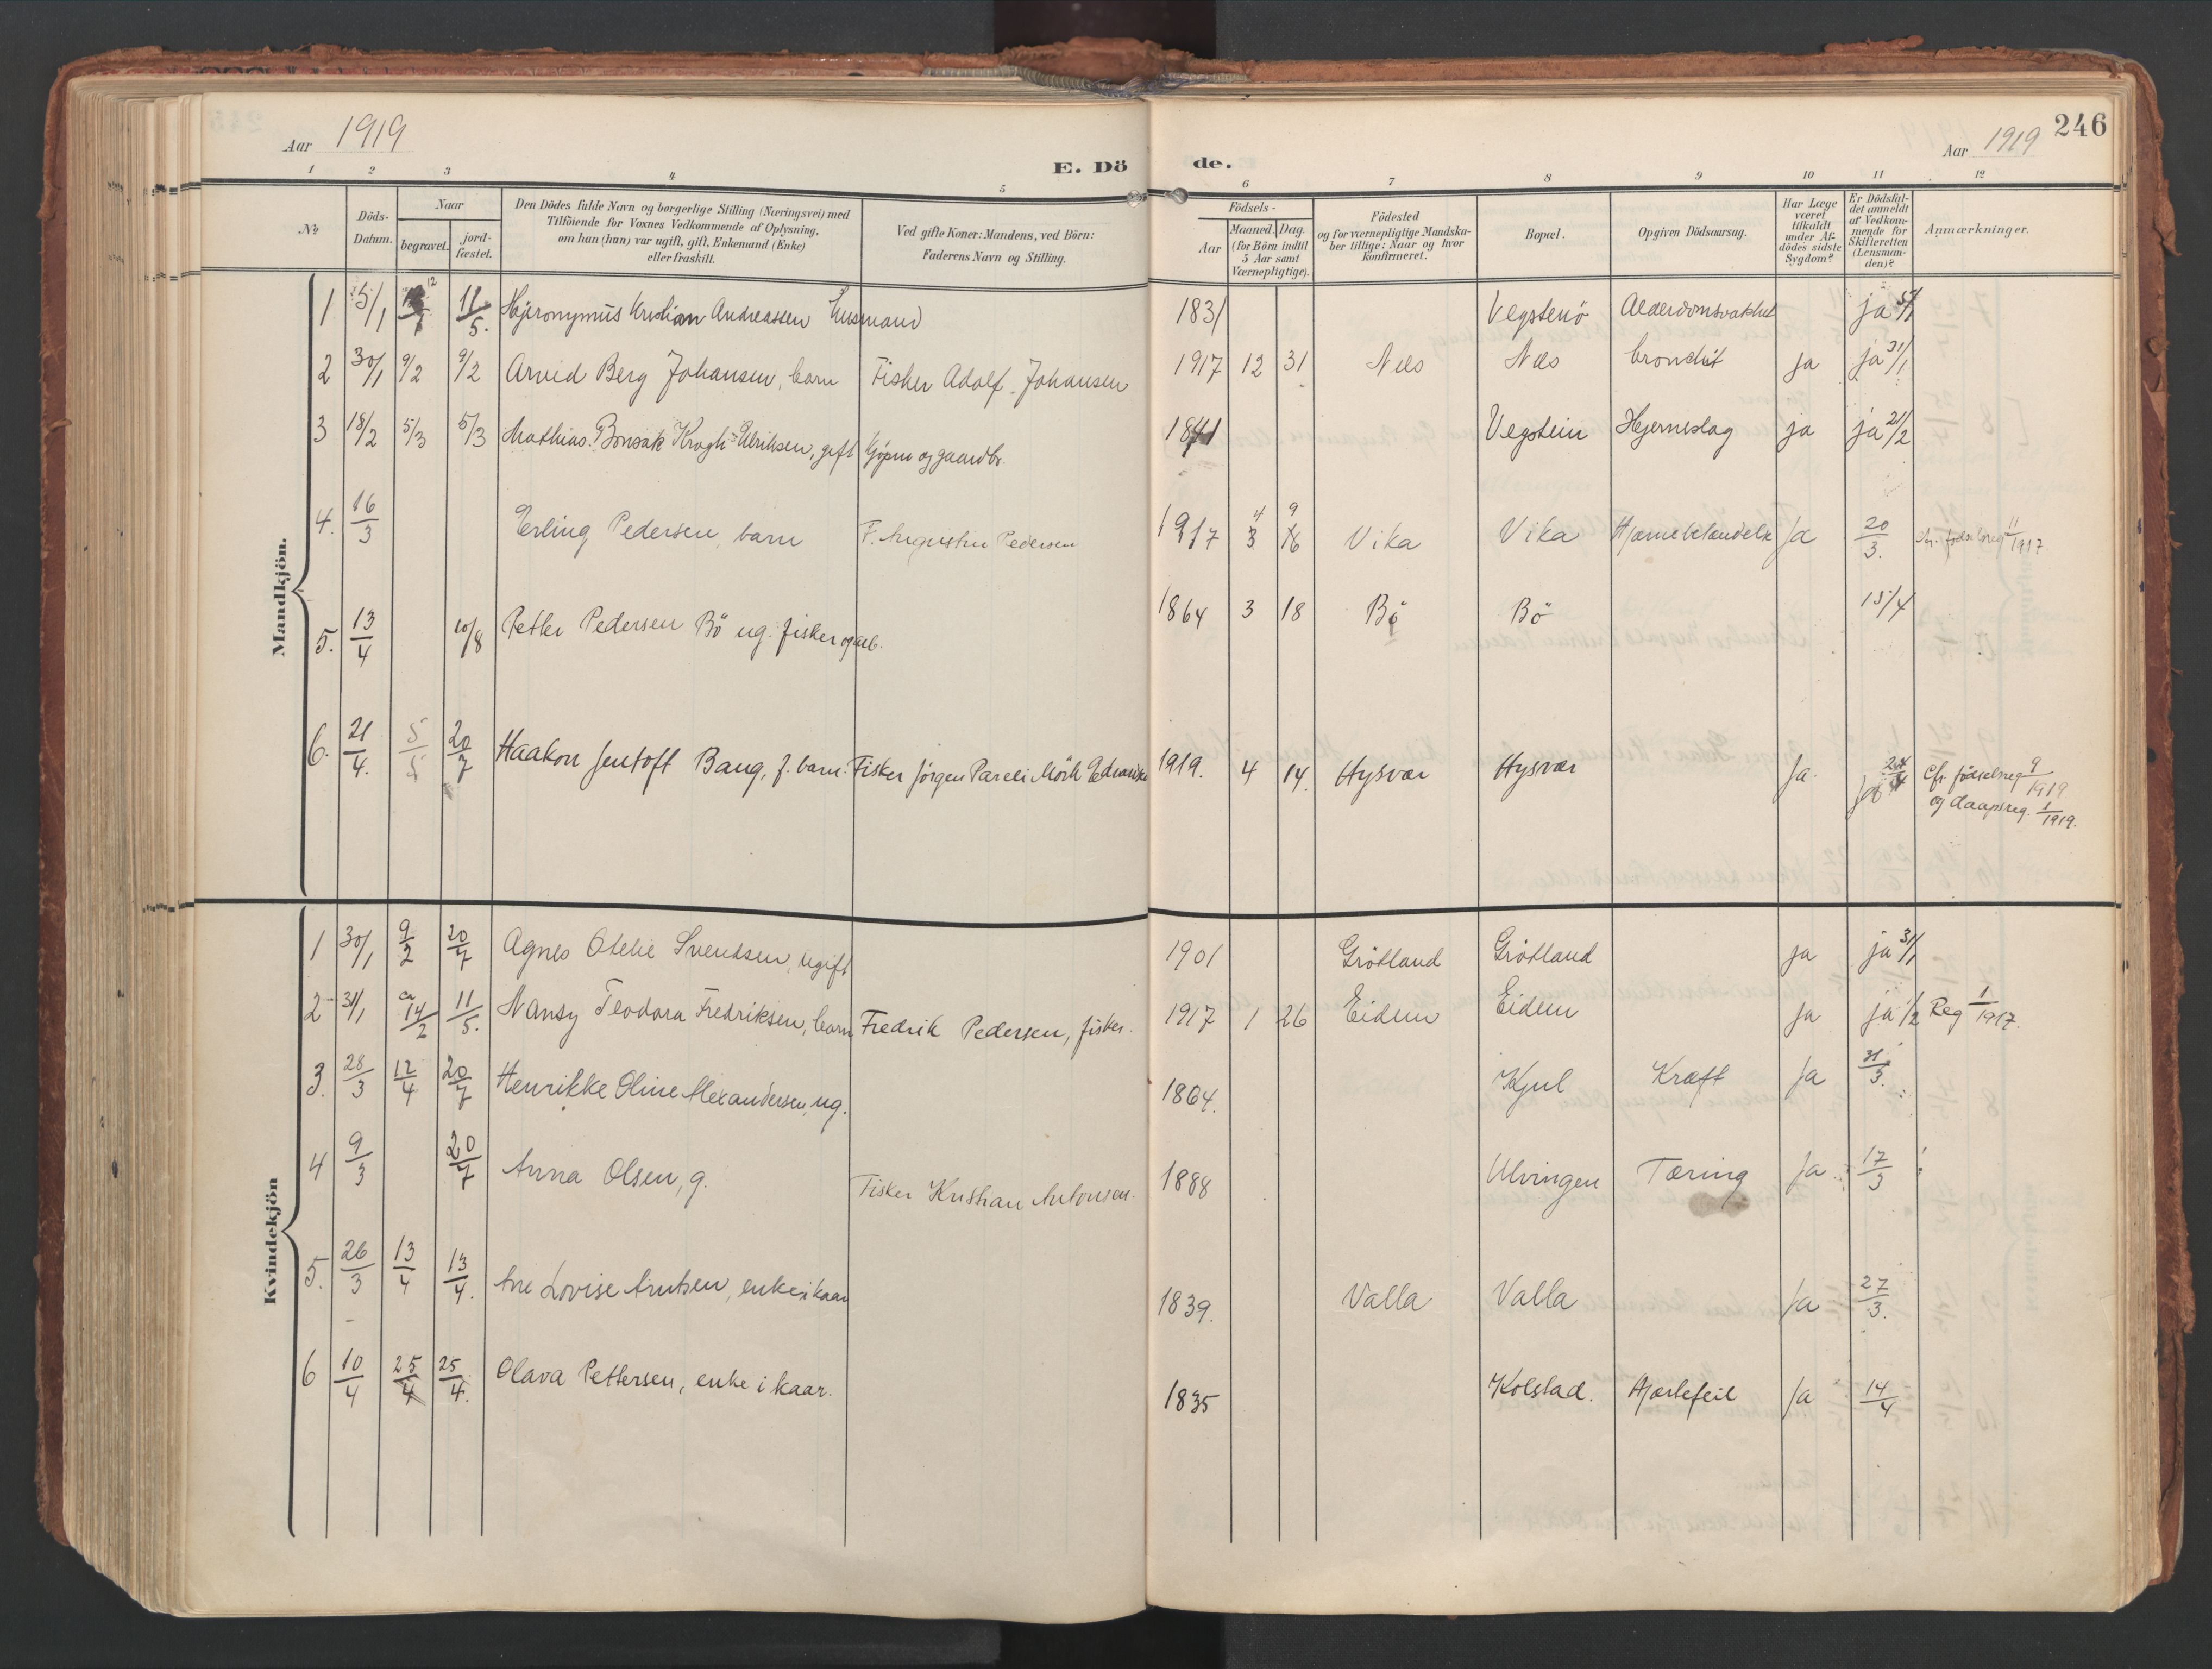 246
Aar 1919
E. Dö
de.
Aar 1919
1 2 3 4 5 6 7 8 9 10 11 12
No
Döds-
Datum.
Naar
begravet.
jord-
fæstet.
Den Dödes fulde Navn og borgerlige Stilling (Næringsvei) med
Tilföiende for Voxnes Vedkommende af Oplysning.
om han (hun) var ugift, gift, Enkemand (Enke)
eller fraskilt.
Ved gifte Koner: Mandens, ved Börn:
Faderens Navn og Stilling.
Födsels-
Aar
Maaned.
Dag.
(for Börn indtil
5 Aar samt
Værnepligtige).
Födested
og for værnepligtige Mandska-
ber tillige: Naar og hvor
konfirmeret.
Bopæl.
Opgiven Dödsaarsag.
Har Læge
været
tilkaldt
under Af-
dödes sidste
Sygdom?
Er Dödsfal-
det anmeldt
af Vedkom-
mende for
Skifteretten
(Lensman-
den)?
Anmærkninger.
Mandkjön.
1 5/1 12 11/5. Hjeronymus Kristian Andreassen Husmand 1831 Vegstenö Alderdomsvakhet ja 5/1
2 30/1 9/2 9/2 Arvid Berg Johansen, barn Fisker Adolf Johansen 1917 12 31 Nes Nes bronchit ja ja 31/1
3 18/2 5/3 5/3 Mathias Bonsak Krogh Ulriksen, gift Kjøpm og gaardbr. 1841 Vegstein Hjerneslag ja ja 21/2
4. 16/3 Erling Pedersen, barn F. Augustin Pedersen 1917 4 3 9 16 Vika Vika Hjernebetændelse Ja 20/3. cfr. fødselsreg 11/1917
5. 13/4 10/8 Petter Pedersen Bö ug. fisker og arb. 1864 3 18 Bö Bö 15/4
6. 21/4. 5/5 20/7 Haakon Jentoft Bang, f. barn. Fisker Jörgen Pareli Mörk Edvardsen 1919. 4 14. Hysvær Hysvær Ja. Ja 24/4 Cfr. fødselsreg 9/1919
og daapsreg. 1/1919.
Kvindekjön
1 30/1 9/2 20/7 Agnes Otelie Svendsen, ugift 1901 Grötland Grötland ja ja 31/1
2 31/1 ca 14/2 11/5. Nansy Teodora Fredriksen, barn Fredrik Pedersen, fisker. 1917 1 26 Eidem Eidem ja ja 1/2 Reg 1/1917.
3. 28/3 12/4 20/7 Henrikke Oline Alexandersen, ug. 1864. Kjul Kræft Ja 31/3.
4 9/3 20/7 Anna Olsen, g. Fisker Kristian Antonsen. 1888 Ulvingen Tæring Ja 17/3
5. 26/3 13/4 13/4. Ane Lovise Arntsen, enke i kaar 1839. Valla Valla Ja 27/3.
6 10/4 25/4 25/4. Olava Pettersen, enke i kaar. 1835 Kolstad. Hjertefeil Ja 14/4